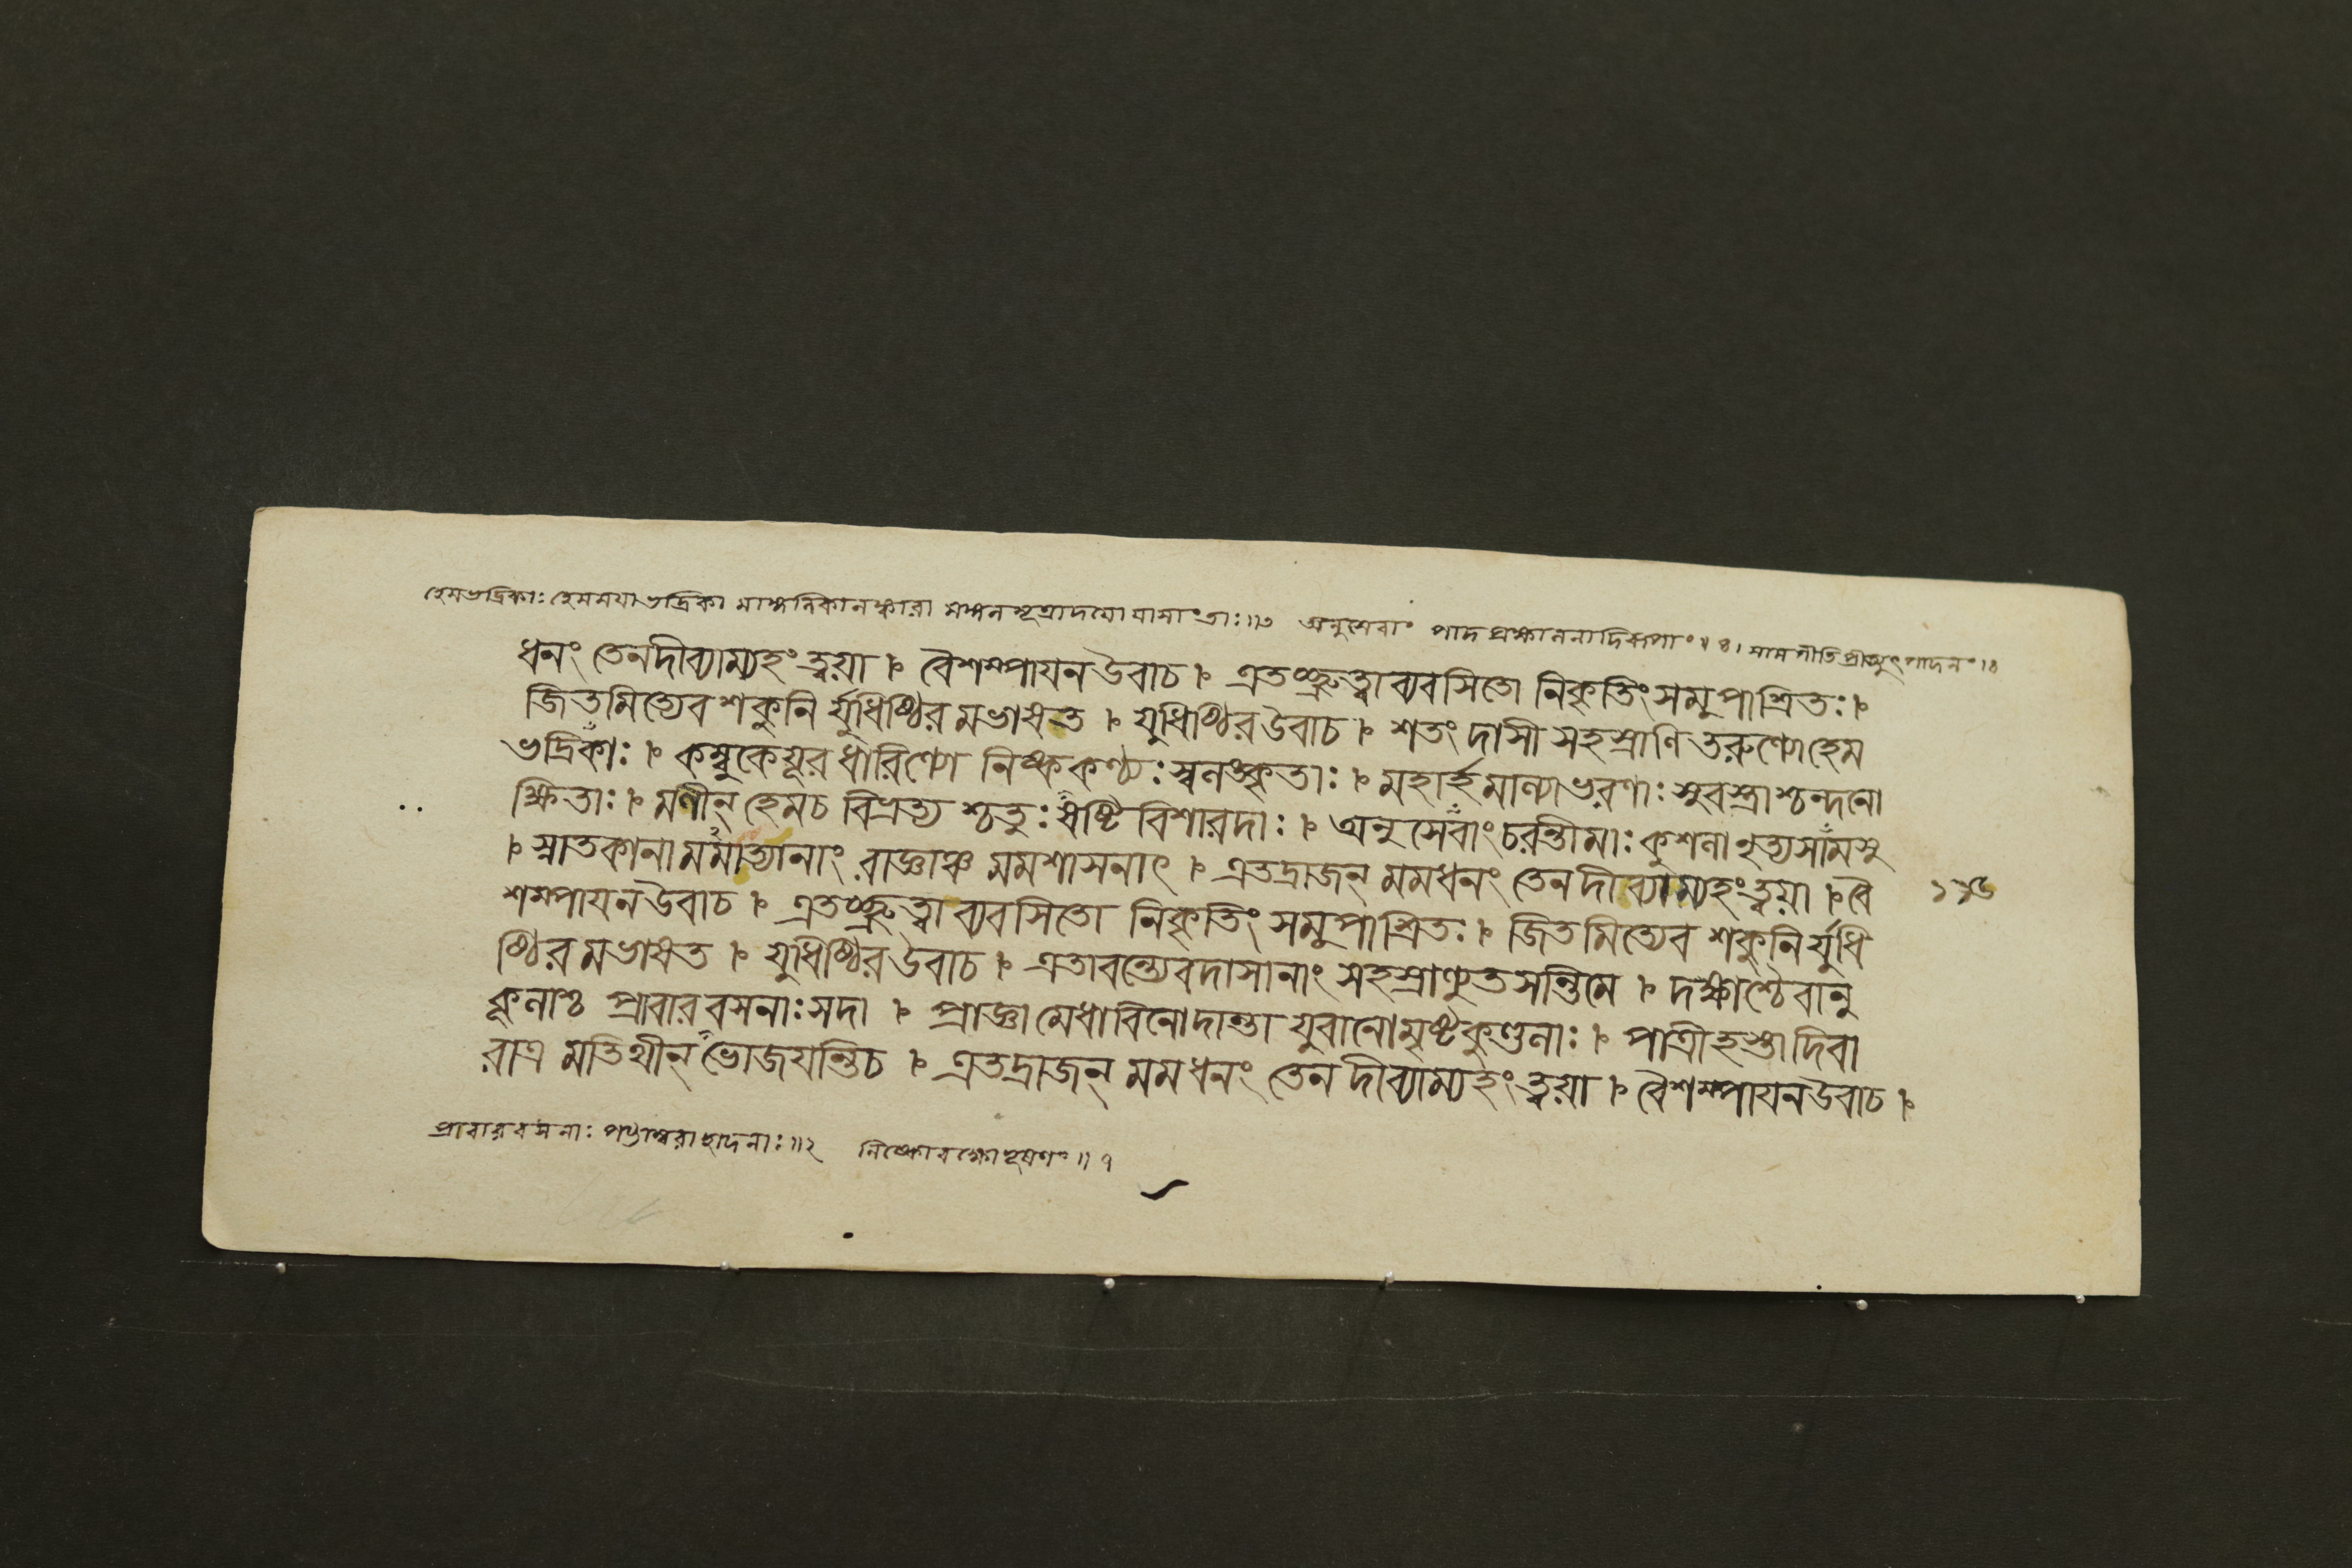 হেমভদ্রিকাঃ হেমময্যাভদ্রিকা মাঙ্গলিকালঙ্কারা মঙ্গলসূত্রাদয়ো যাসাং তাঃ॥৩ অনুসেবাং পাদপ্রক্ষালনাদিরূপাং॥৪।
ধনং তেনদীব্যাম্যহং ত্বয়া । বৈশম্পায়নউবাচ । এতচ্ছ্রুত্বা ব্যবসিতো নিকৃতিং সমুপাশ্রিতঃ ।
জিতমিত্যেব শকুনি র্যুধিষ্ঠির মভাষত । যুধিষ্ঠিরউবাচ । শতং দাসী সহস্রাণি তরুণ্যোহেম
ভদ্রিকাঃ । কম্বুকেয়ূর ধারিণ্যো নিষ্ককণ্ঠ্যঃ স্বলঙ্কৃতাঃ । মহার্হমাল্যাভরণাঃ সুবস্ত্রাশ্চন্দনো
ক্ষিতাঃ । মণীন্ হেমচ বিভ্রত্য শ্চতুঃষষ্টি বিশারদাঃ । অনুসেবাংচরন্তীমাঃ কুশলানৃত্যসামসু
। স্নাতকানামমাত্যানাং রাজ্ঞাঞ্চ মমশাসনাৎ । এতদ্রাজন্ মমধনং তেন দীব্যাম্যহংত্বয়া । বৈ
শম্পায়নউবাচ । এতচ্ছ্রুত্বা ব্যবসিতো নিকৃতিং সমুপাশ্রিতঃ । জিতমিত্যেব শকুনির্যুধি
ষ্ঠির মভাষত । যুধিষ্ঠিরউবাচ । এতাবন্ত্যেবদাসানাং সহস্রাণ্যুতসন্তিমে । দক্ষাশ্চৈবানু
কূলাশ্চ প্রাবারবসনাঃ সদা । প্রাজ্ঞামেধাবিনোদান্তা যুবানোমৃষ্টকুণ্ডলাঃ । পাত্রীহস্তাদিবা
রাত্র মতিথীন্ ভোজয়ন্তিচ । এতদ্রাজন্ মমধনং তেন দীব্যাম্যহং ত্বয়া । বৈশম্পায়নউবাচ ।
প্রাবারবসনাঃ পণ্ডাম্বরাছাদনাঃ॥২ নিষ্কোবক্ষোভূষণং॥১